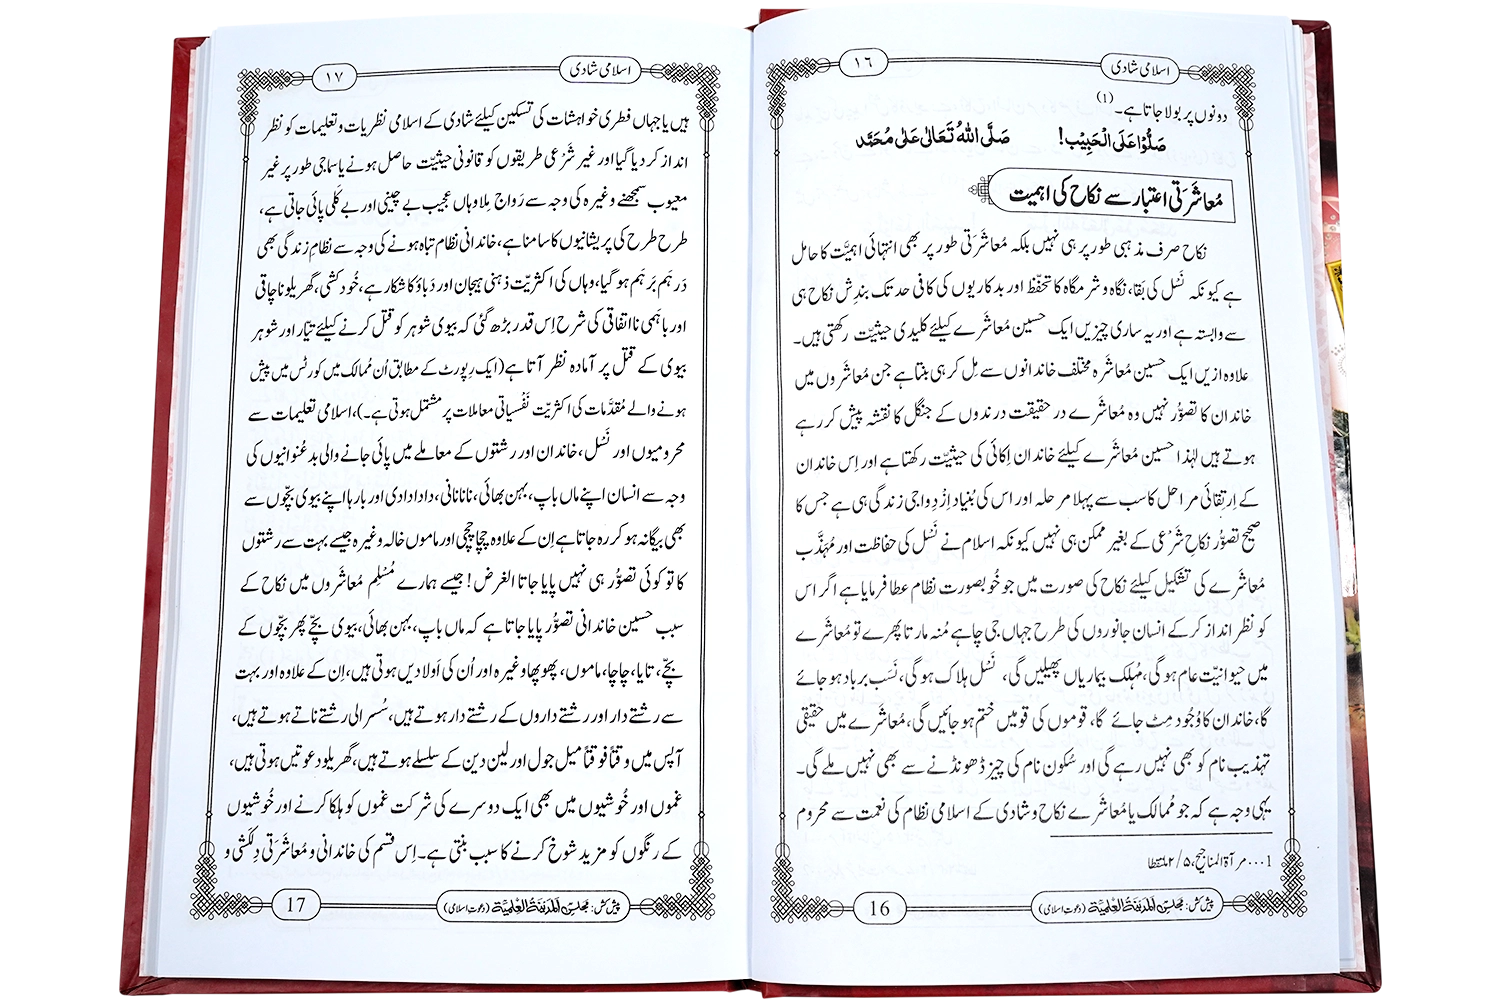 اسلامی شادی
١٦
دونوں پر بولا جاتا ہے۔ (1)
صَلُّوْا عَلَی الْحَبِیْب! صَلَّی اللہُ تَعَالٰی عَلٰی مُحَمَّد
مُعاشَرَتی اعتبار سے نکاح کی اہمیت
نکاح صرف مذہبی طور پر ہی نہیں بلکہ مُعاشَرَتی طور پر بھی انتہائی اہمیَّت کا حامل
ہے کیونکہ نَسْل کی بَقا، نگاہ و شرمگاہ کا تحفّظ اور بدکاریوں کی کافی حد تک بندِش نکاح ہی
سے وابستہ ہے اور یہ ساری چیزیں ایک حسین مُعاشرے کیلئے کلیدی حیثیّت رکھتی ہیں۔
علاوہ ازیں ایک حسین مُعاشرہ مختلف خاندانوں سے مِل کر ہی بنتا ہے جن مُعاشروں میں
خاندان کا تصوُّر نہیں وہ مُعاشرے در حقیقت درندوں کے جنگل کا نقشہ پیش کر رہے
ہوتے ہیں لہٰذا حسین مُعاشرے کیلئے خاندان اِکائی کی حیثیّت رکھتا ہے اور اِس خاندان
کے اِرتِقائی مراحل کا سب سے پہلا مرحلہ اور اس کی بُنیاد اِزْدِواجی زندگی ہی ہے جس کا
صحیح تصوُّر نکاحِ شَرْعی کے بغیر ممکن ہی نہیں کیونکہ اسلام نے نَسْل کی حفاظت اور مُہَذَّب
مُعاشرے کی تشکیل کیلئے نکاح کی صورت میں جو خُوبصورت نظام عطا فرمایا ہے اگر اس
کو نظر انداز کرکے انسان جانوروں کی طرح جہاں جی چاہے مُنہ مارتا پھرے تو مُعاشرے
میں حیوانیّت عام ہوگی، مُہلِک بیماریاں پھیلیں گی، نَسْل ہلاک ہوگی، نَسَب برباد ہوجائے
گا، خاندان کا وُجُود مِٹ جائے گا، قوموں کی قومیں ختم ہوجائیں گی، مُعاشرے میں حقیقی
تہذیب نام کو بھی نہیں رہے گی اور سُکون نام کی چیز ڈھونڈنے سے بھی نہیں ملے گی۔
یہی وجہ ہے کہ جو مُمالک یا مُعاشرے نکاح و شادی کے اسلامی نظام کی نعمت سے محروم
1 ... مرآۃ المناجیح، ۵/۲ ملتقطا
پیش کش: مجلس المدینۃ العلمیۃ (دعوت اسلامی)
16
اسلامی شادی
١٧
ہیں یا جہاں فطری خواہشات کی تسکین کیلئے شادی کے اسلامی نظریات و تعلیمات کو نظر
انداز کر دیا گیا اور غیر شَرْعی طریقوں کو قانونی حیثیّت حاصل ہونے یا سماجی طور پر غیر
معیوب سمجھنے وغیرہ کی وجہ سے رَواج مِلا وہاں عجیب بے چینی اور بے کَلی پائی جاتی ہے،
طرح طرح کی پریشانیوں کا سامنا ہے، خاندانی نظام تباہ ہونے کی وجہ سے نظامِ زندگی بھی
دَرہَم بَرہَم ہوگیا، وہاں کی اکثریّت ذہنی ہیجان اور دَباؤ کا شکار ہے، خُودکشی، گھریلو ناچاقی
اور باہَمی نااتفاقی کی شرح اِس قدر بڑھ گئی کہ بیوی شوہر کو قتل کرنے کیلئے تیّار اور شوہر
بیوی کے قتل پر آمادہ نظر آتا ہے (ایک رپورٹ کے مطابق اُن مُمالک میں کورٹس میں پیش
ہونے والے مُقدَّمات کی اکثریّت نَفْسیاتی معاملات پر مشتمل ہوتی ہے۔)، اسلامی تعلیمات سے
محرومیوں اور نَسْل، خاندان اور رشتوں کے معاملے میں پائی جانے والی بدعُنوانیوں کی
وجہ سے انسان اپنے ماں باپ، بہن بھائی، نانا نانی، دادا دادی اور بارہا اپنے بیوی بچّوں سے
بھی بیگانہ ہوکر رہ جاتا ہے اِن کے علاوہ چچا چچی اور ماموں خالہ وغیرہ جیسے بہت سے رشتوں
کا تو کوئی تصوُّر ہی نہیں پایا جاتا الغرض! جیسے ہمارے مُسْلِم مُعاشَروں میں نکاح کے
سبب حسین خاندانی تصوُّر پایا جاتا ہے کہ ماں باپ، بہن بھائی، بیوی بچّے پھر بچّوں کے
بچّے، تایا، چاچا، ماموں، پھوپھا وغیرہ اور اُن کی اَولادیں ہوتی ہیں، اِن کے علاوہ اور بہت
سے رشتے دار اور رشتے داروں کے رشتے دار ہوتے ہیں، سُسرالی رشتے ناتے ہوتے ہیں،
آپس میں وقتاً فوقتاً میل جول اور لین دین کے سلسلے ہوتے ہیں، گھریلو دعوتیں ہوتی ہیں،
غموں اور خُوشیوں میں بھی ایک دوسرے کی شرکت غموں کو ہلکا کرنے اور خُوشیوں
کے رنگوں کو مزید شوخ کرنے کا سبب بنتی ہے۔ اِس قسم کی خاندانی و مُعاشَرَتی دِلکَشی و
پیش کش: مجلس المدینۃ العلمیۃ (دعوت اسلامی)
17